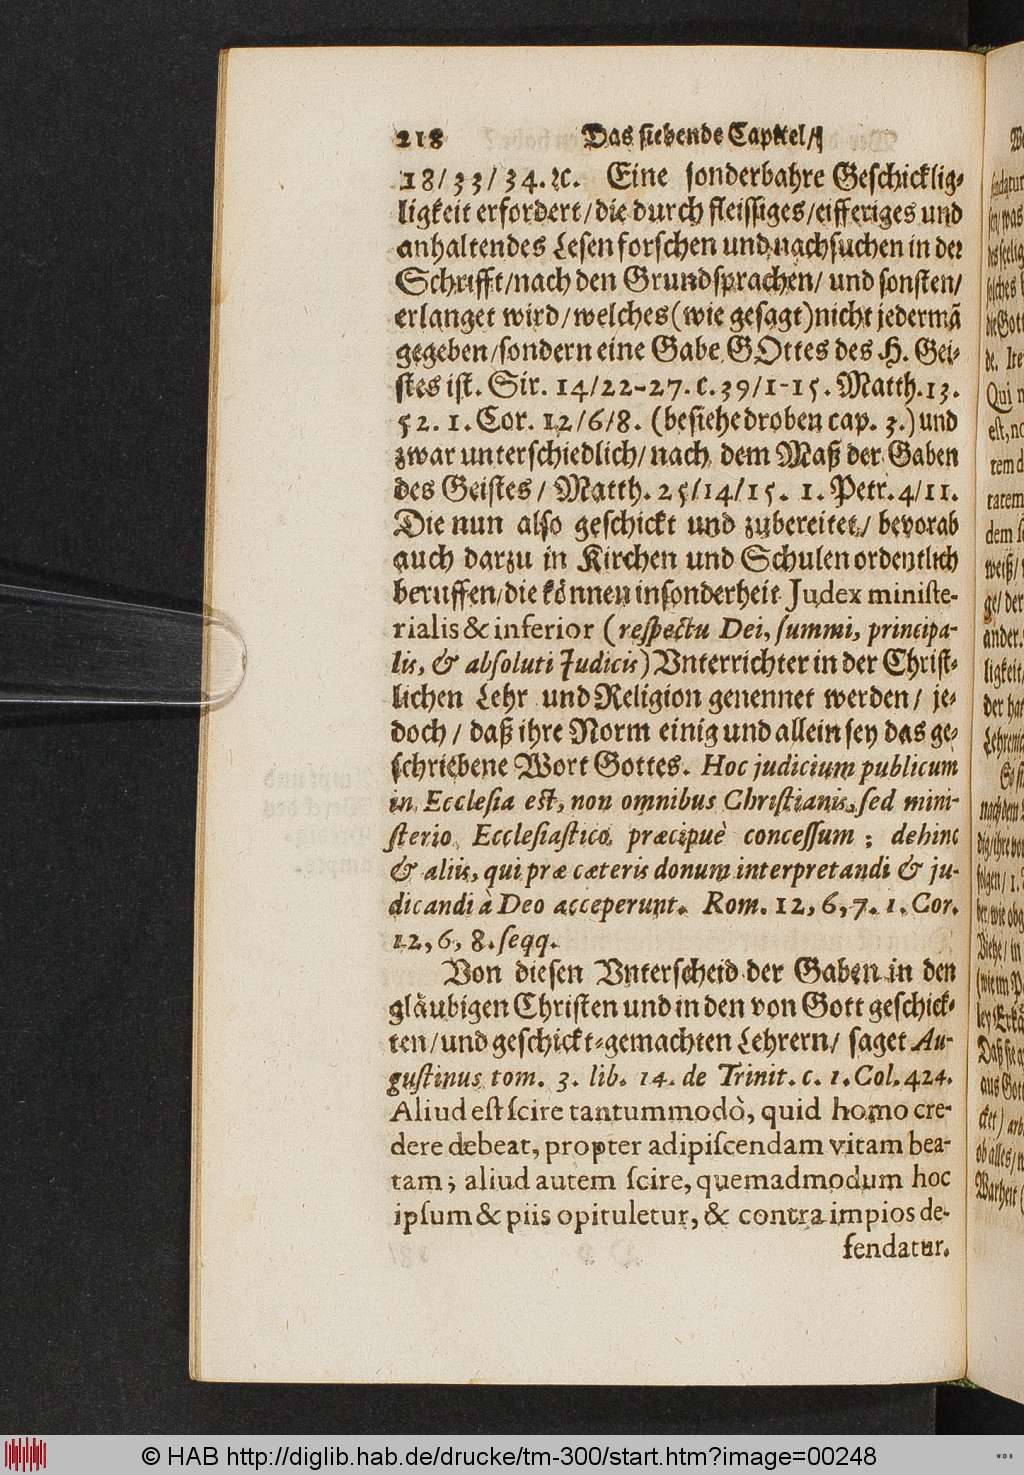 218 Das siebende Capittel/
18/33/34. ꝛc. Eine sonderbahre Geschicklig-
ligkeit erfordert/die durch fleissiges/eifferiges und
anhaltendes Lesen forschen und nachsuchen in der
Schrifft/nach den Grundsprachen/ und sonsten/
erlanget wird/welches(wie gesagt)nicht jedermã
gegeben/sondern eine Gabe GOttes des H. Gei-
stes ist. Sir. 14/22-27. c. 39/1-15. Matth. 13.
52. 1. Cor. 12/6/8. (besiehe droben cap. 3.) und
zwar unterschiedlich/ nach dem Maß der Gaben
des Geistes/ Matth. 25/14/15. 1. Petr. 4/11.
Die nun also geschickt und zubereitet/ bevorab
auch darzu in Kirchen und Schulen ordentlich
beruffen/die können insonderheit Judex ministe-
rialis & inferior (respectu Dei, summi, principa-
lis, & absoluti Judicis) Vnterrichter in der Christ-
lichen Lehr und Religion genennet werden/ je-
doch/ daß ihre Norm einig und allein sey das ge-
schriebene Wort Gottes. Hoc judicium publicum
in Ecclesia est, non omnibus Christianis, sed mini-
sterio Ecclesiastico præcipuè concessum ; dehinc
& aliis, qui præ cæteris donum interpretandi & ju-
dicandi à Deo acceperunt. Rom. 12, 6, 7. 1. Cor.
12, 6, 8. seqq.
Von diesen Vnterscheid der Gaben in den
gläubigen Christen und in den von Gott geschick-
ten/und geschickt-gemachten Lehrern/ saget Au-
gustinus tom. 3. lib. 14. de Trinit. c. 1. Col. 424.
Aliud est scire tantummodò, quid homo cre-
dere debeat, propter adipiscendam vitam bea-
tam ; aliud autem scire, quemadmodum hoc
ipsum & piis opituletur, & contra impios de-
fendatur.
© HAB http://diglib.hab.de/drucke/tm-300/start.htm?image=00248